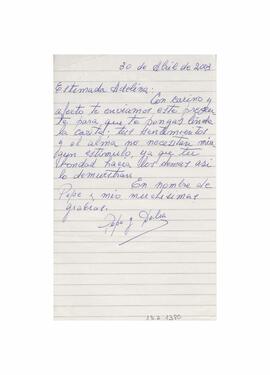 30 de Abril de 2003
Estimada Adelina:
Con cariño y
afecto te enviamos este presen
te para que te pongas linda
la carita; tus sentimientos
y el alma no necesitan nin
gun estimulo, ya que tu
bondad hacia los demas asi
lo demuestran.
En nombre de
Pepe y mio muchisimas
gracias.
Pepe y Delia